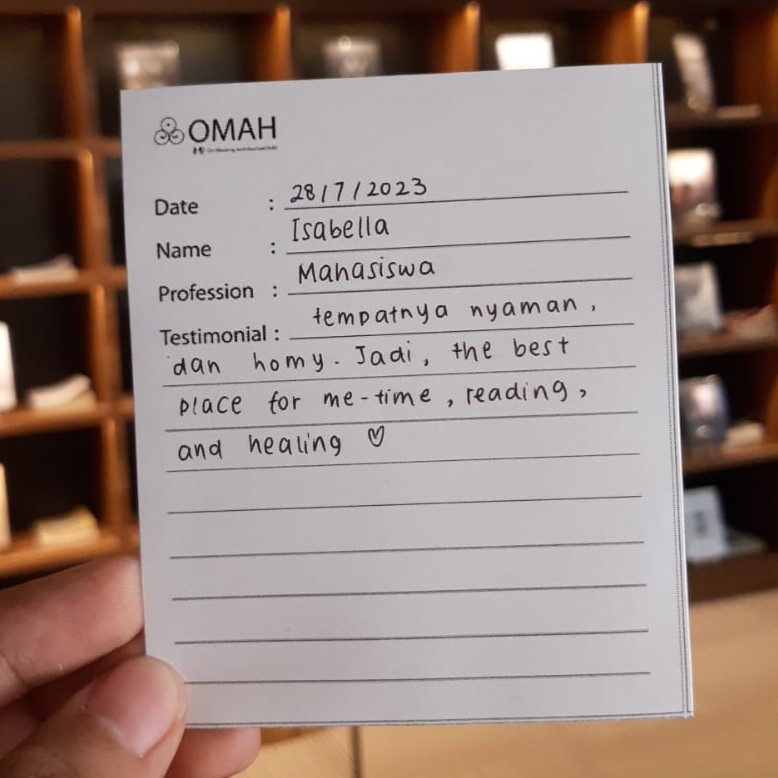 OMAH
Date : 28/7/2023
Name : Isabella
Profession : Mahasiswa
Testimonial : tempatnya nyaman,
dan homy. Jadi, the best
place for me-time, reading,
and healing ♡